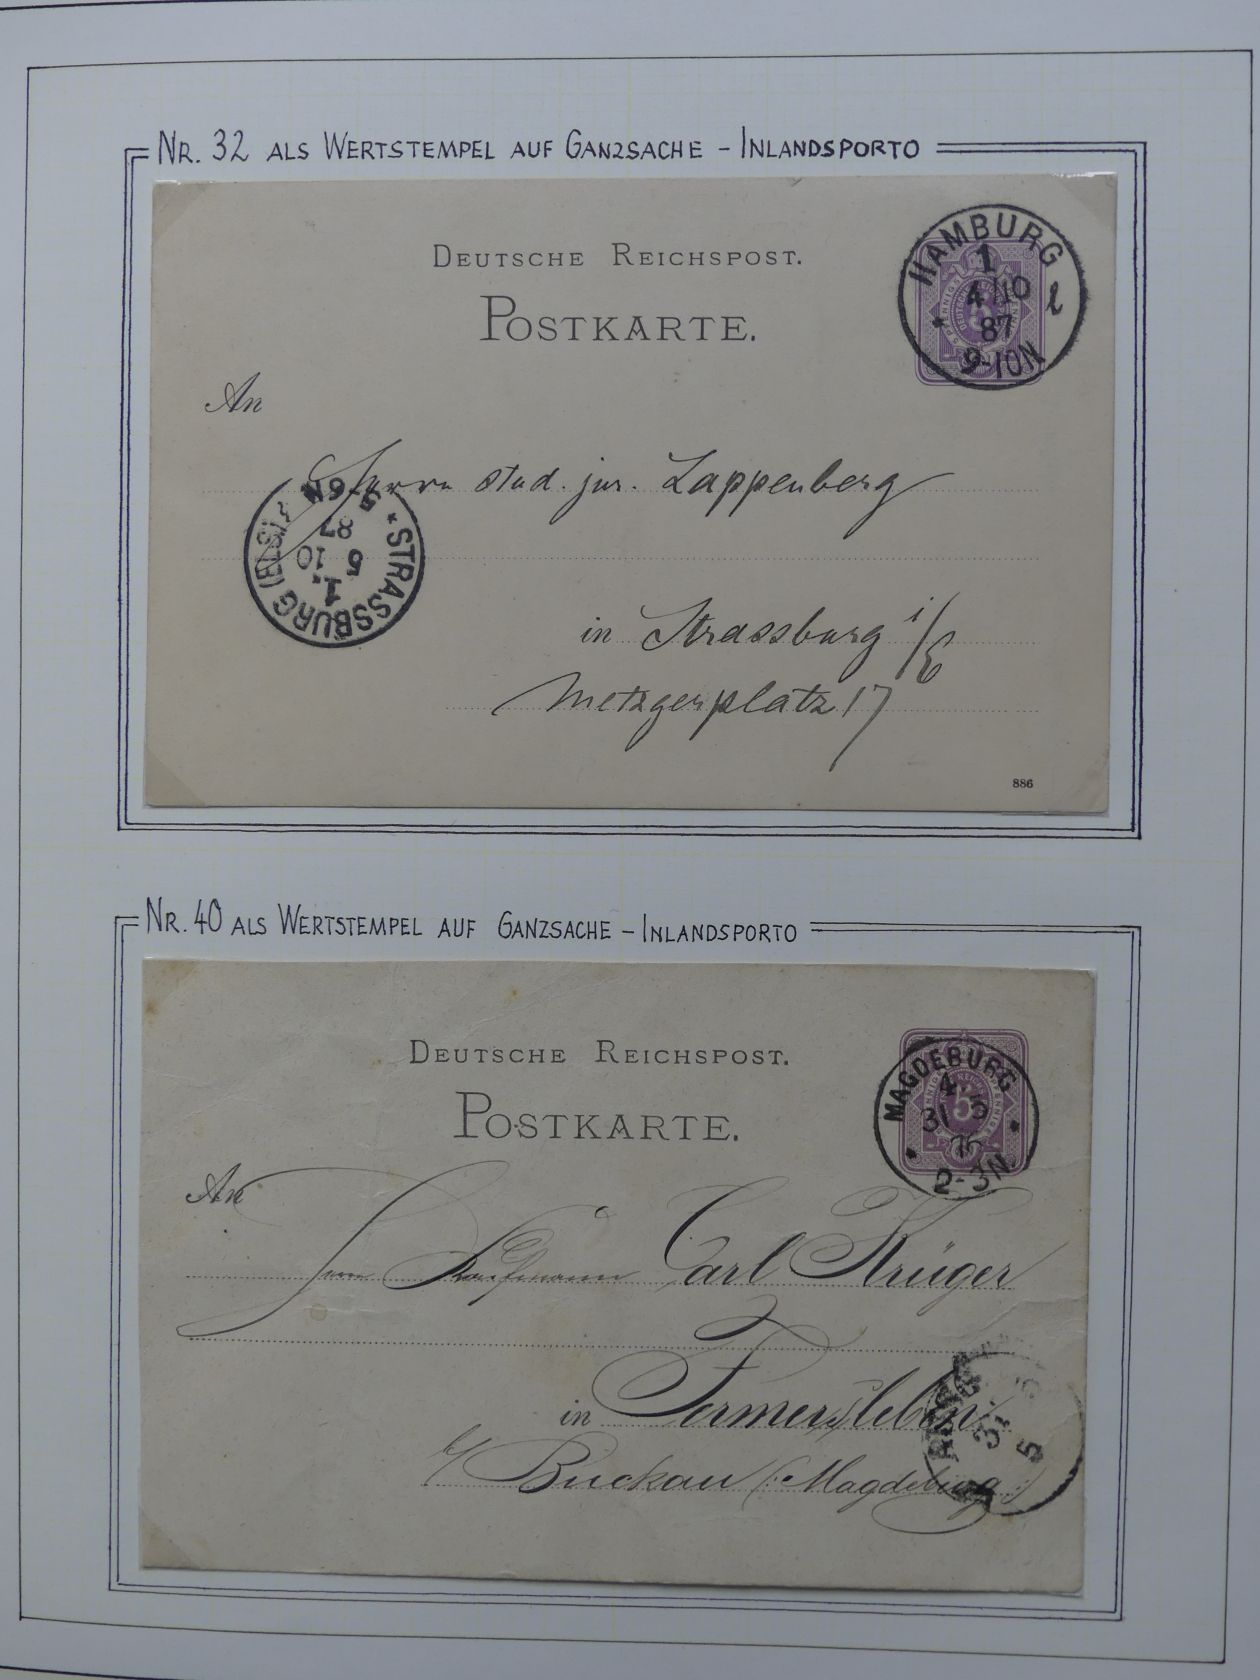 NR. 32 ALS WERTSTEMPEL AUF GANZSACHE – INLANDSPORTO
DEUTSCHE REICHSPOST.
POSTKARTE.
HAMBURG
1
4 10
87
9-10N
An
Herrn stud. jur. Lappenberg
STRASSBURG (ELS)
1.
5 10
87
5-6N
in Strassburg i/E
Metzgerplatz 17
886
NR. 40 ALS WERTSTEMPEL AUF GANZSACHE – INLANDSPORTO
DEUTSCHE REICHSPOST.
POSTKARTE.
MAGDEBURG
4.
31 5
2-3N.
5
An
Kaufmann Carl Krüger
in Fermersleben
b/ Buckau (Magdeburg)
31
5